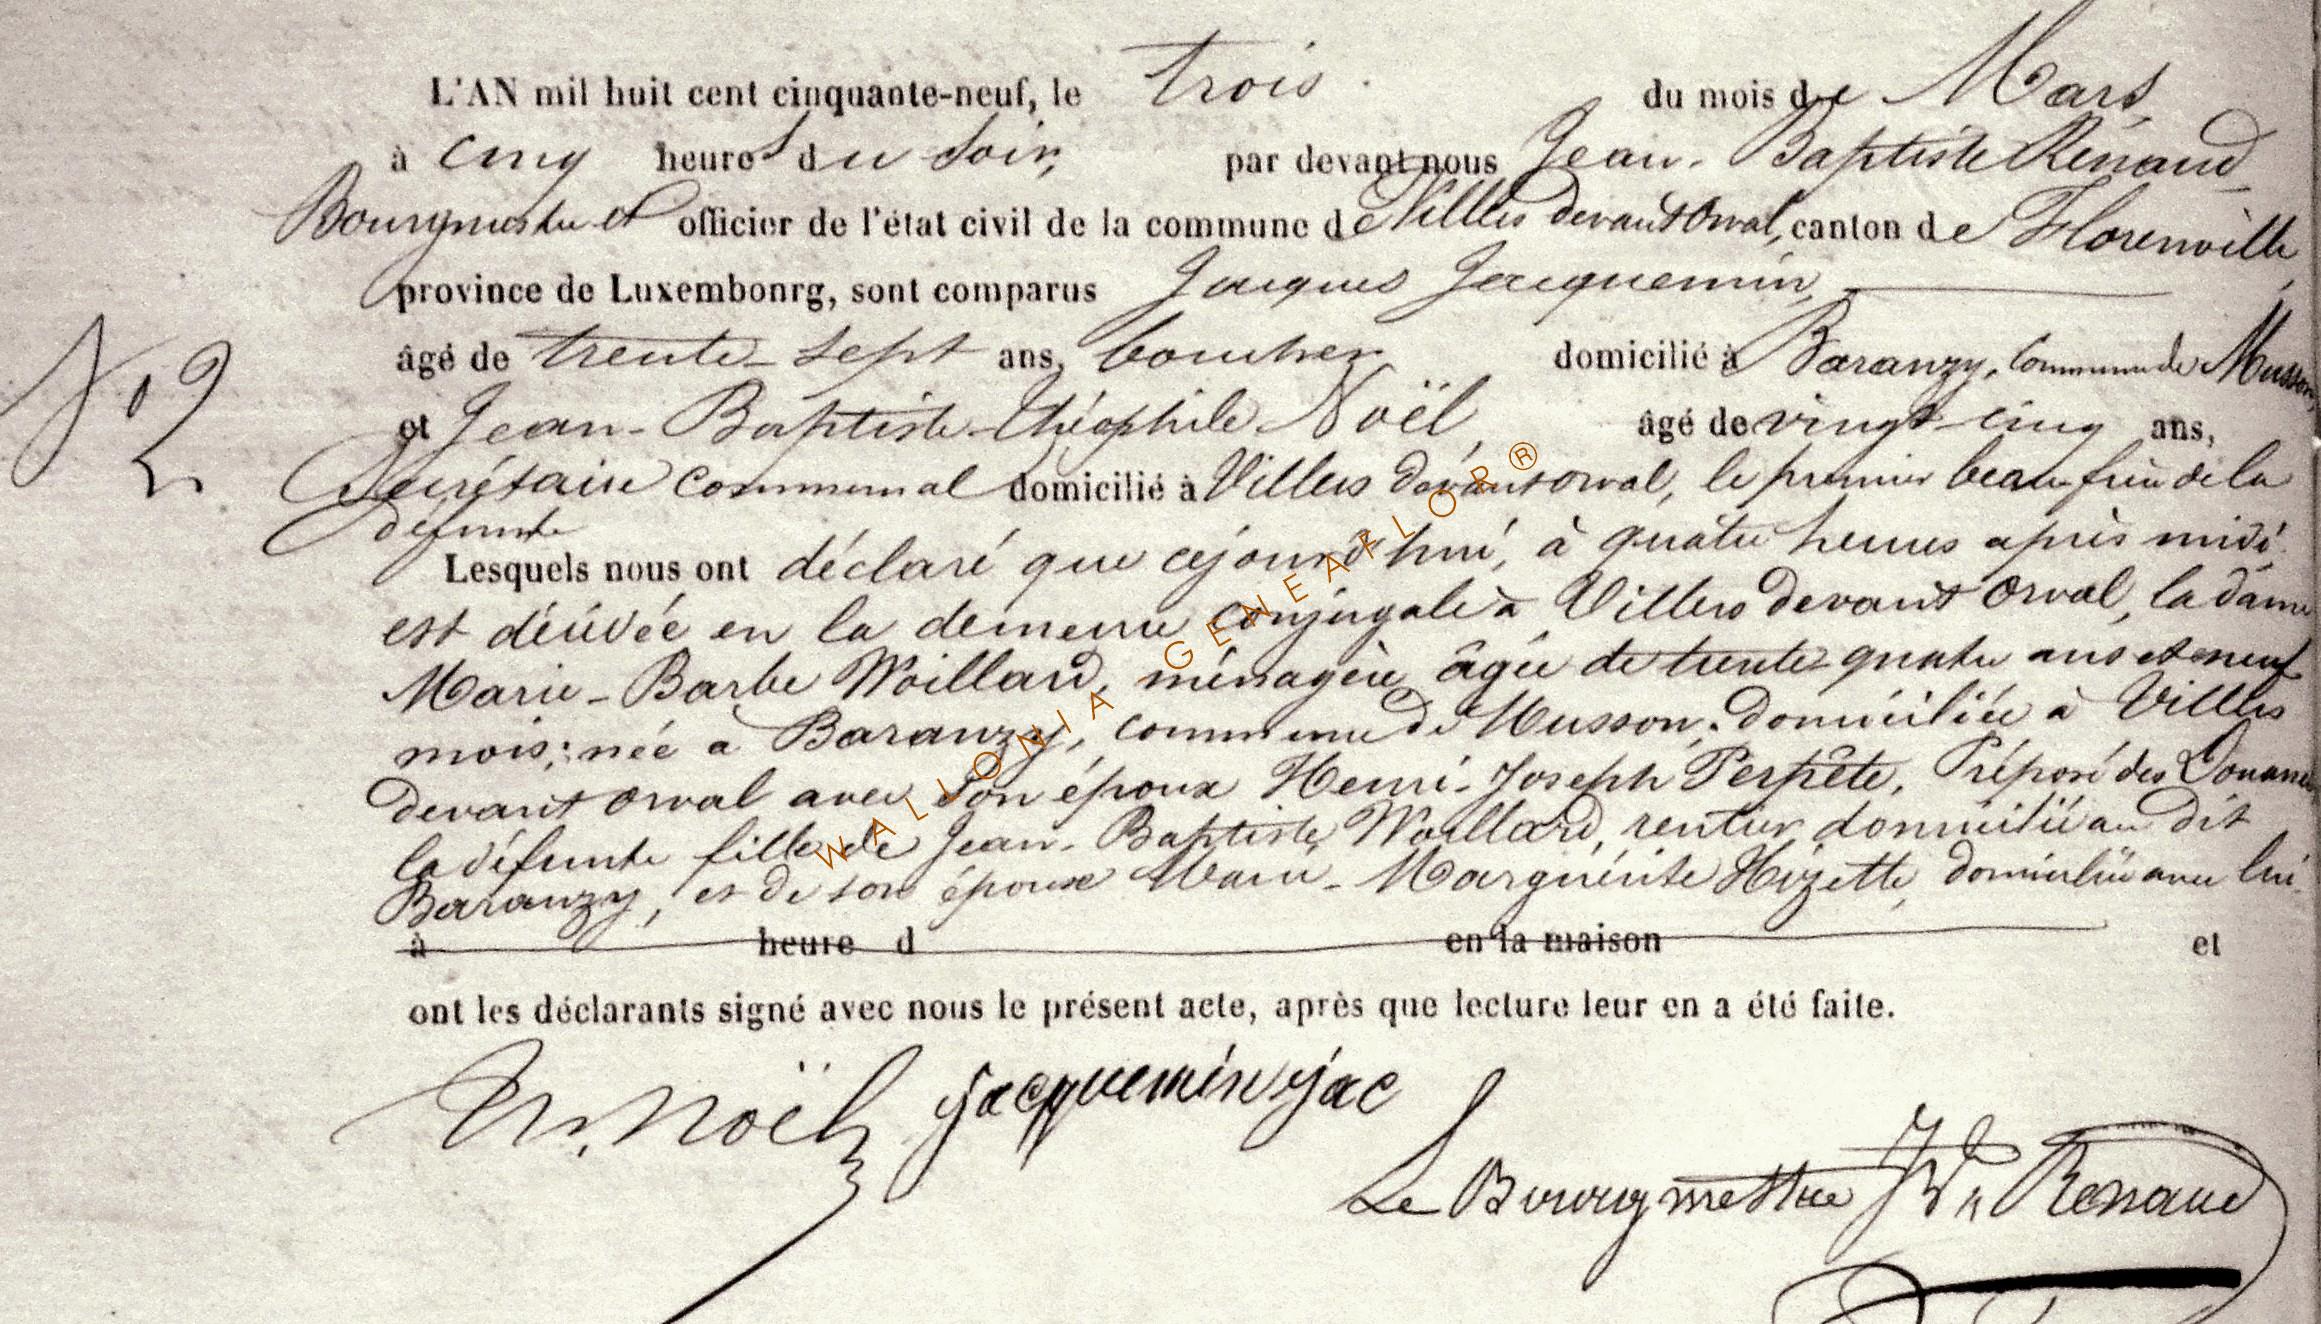 L'AN mil huit cent cinquante-neuf, le trois du mois de Mars
à cinq heures du soir, par devant nous Jean-Baptiste Renaud
Bourgmestre et officier de l'état civil de la commune de Villers devant Orval, canton de Florenville,
province de Luxembonrg, sont comparus Jacques Jacquemin,
âgé de trente-sept ans, boucher, domicilié à Baranzy, commune de Musson
N° 2
et Jean-Baptiste-Théophile Noël, âgé de vingt-cinq ans,
Secrétaire communal domicilié à Villers devant orval, le premier beau-frère de la
défunte
Lesquels nous ont déclaré que cejourd'hui, à quatre heures après midi
est décédée en la demeure conjugale à Villers devant Orval, la dame
Marie-Barbe Woillard, ménagère âgée de trente-quatre ans et neuf
mois; née à Baranzy, commune de Musson, domiciliée à Villers
devant orval avec son époux Henri-Joseph Perpête, Préposé des Douanes
la défunte fille de Jean-Baptiste Woillard, rentier domicilié au dit
Baranzy, et de son épouse Marie-Marguérite Hizette, domiciliée avec lui
à heure d en la maison et
ont les déclarants signé avec nous le présent acte, après que lecture leur en a été faite.
Noël jacquemin jac
Le Bourgmettre Renaud
WALLONIA GENEAFLOR®